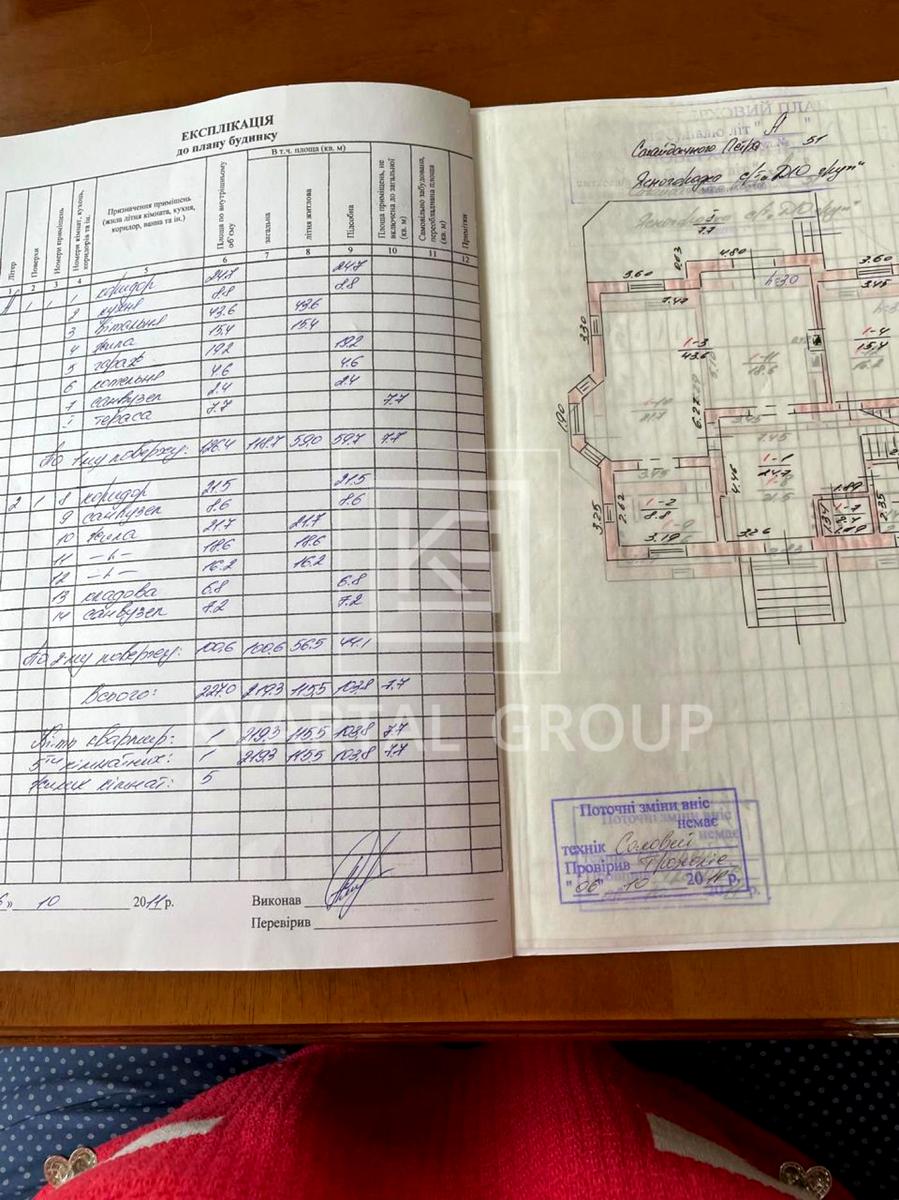 ЕКСПЛІКАЦІЯ
до плану будинку
Літер
Поверхи
Номери приміщень
Номери кімнат, кухонь, коридорів та ін.
Призначення приміщень (жила літня кімната, кухня, коридор, ванна та ін.)
Площа по внутрішньому об'єму
В т.ч. площа (кв. м)
загальна
літня житлова
Підсобна
Площа приміщень, не включена до загальної (кв. м)
Самовільно забудована, переобладнана площа (кв. м)
Примітки
1 2 3 4 5 6 7 8 9 10 11 12
1 1 1 коридор 24.7 24.7
2 кухня 8.8 8.8
3 вітальня 43.6 43.6
4 жила 15.4 15.4
5 гараж 19.2 19.2
6 котельня 4.6 4.6
7 санвузел 2.4 2.4
I тераса 7.7 7.7
По 1-му поверху: 126.4 118.7 59.0 59.7 7.7
2 1 8 коридор 21.5 21.5
9 санвузел 8.6 8.6
10 жила 21.7 21.7
11 —"— 18.6 18.6
12 —"— 16.2 16.2
13 кладова 6.8 6.8
14 санвузел 7.2 7.2
По 2-му поверху: 100.6 100.6 56.5 44.1
Всього: 227.0 219.3 115.5 103.8 7.7
К-ть квартир: 1 219.3 115.5 103.8 7.7
5ти кімнатних: 1 219.3 115.5 103.8 7.7
Жилих кімнат: 5
» 10 2011 р.
Виконав
Перевірив
А
Сагайдачного Петра 51
Ясногородка
I
7.7
0.83
4.80
3.60
3.60
7.40
h=3.0
3.45
3.30
1-3
43.6
1-4
15.4
1-11
18.6
16.2
1.90
6.22
21.7
3.45
7.45
3.75
1-1
24.7
21.5
4.46
1.89
3.25
2.62
1-2
8.8
2.35
3.19
3.26
KVARTAL GROUP
Поточні зміни вніс
немає
технік Соловей
Перевірив
"06" 10 2011 р.